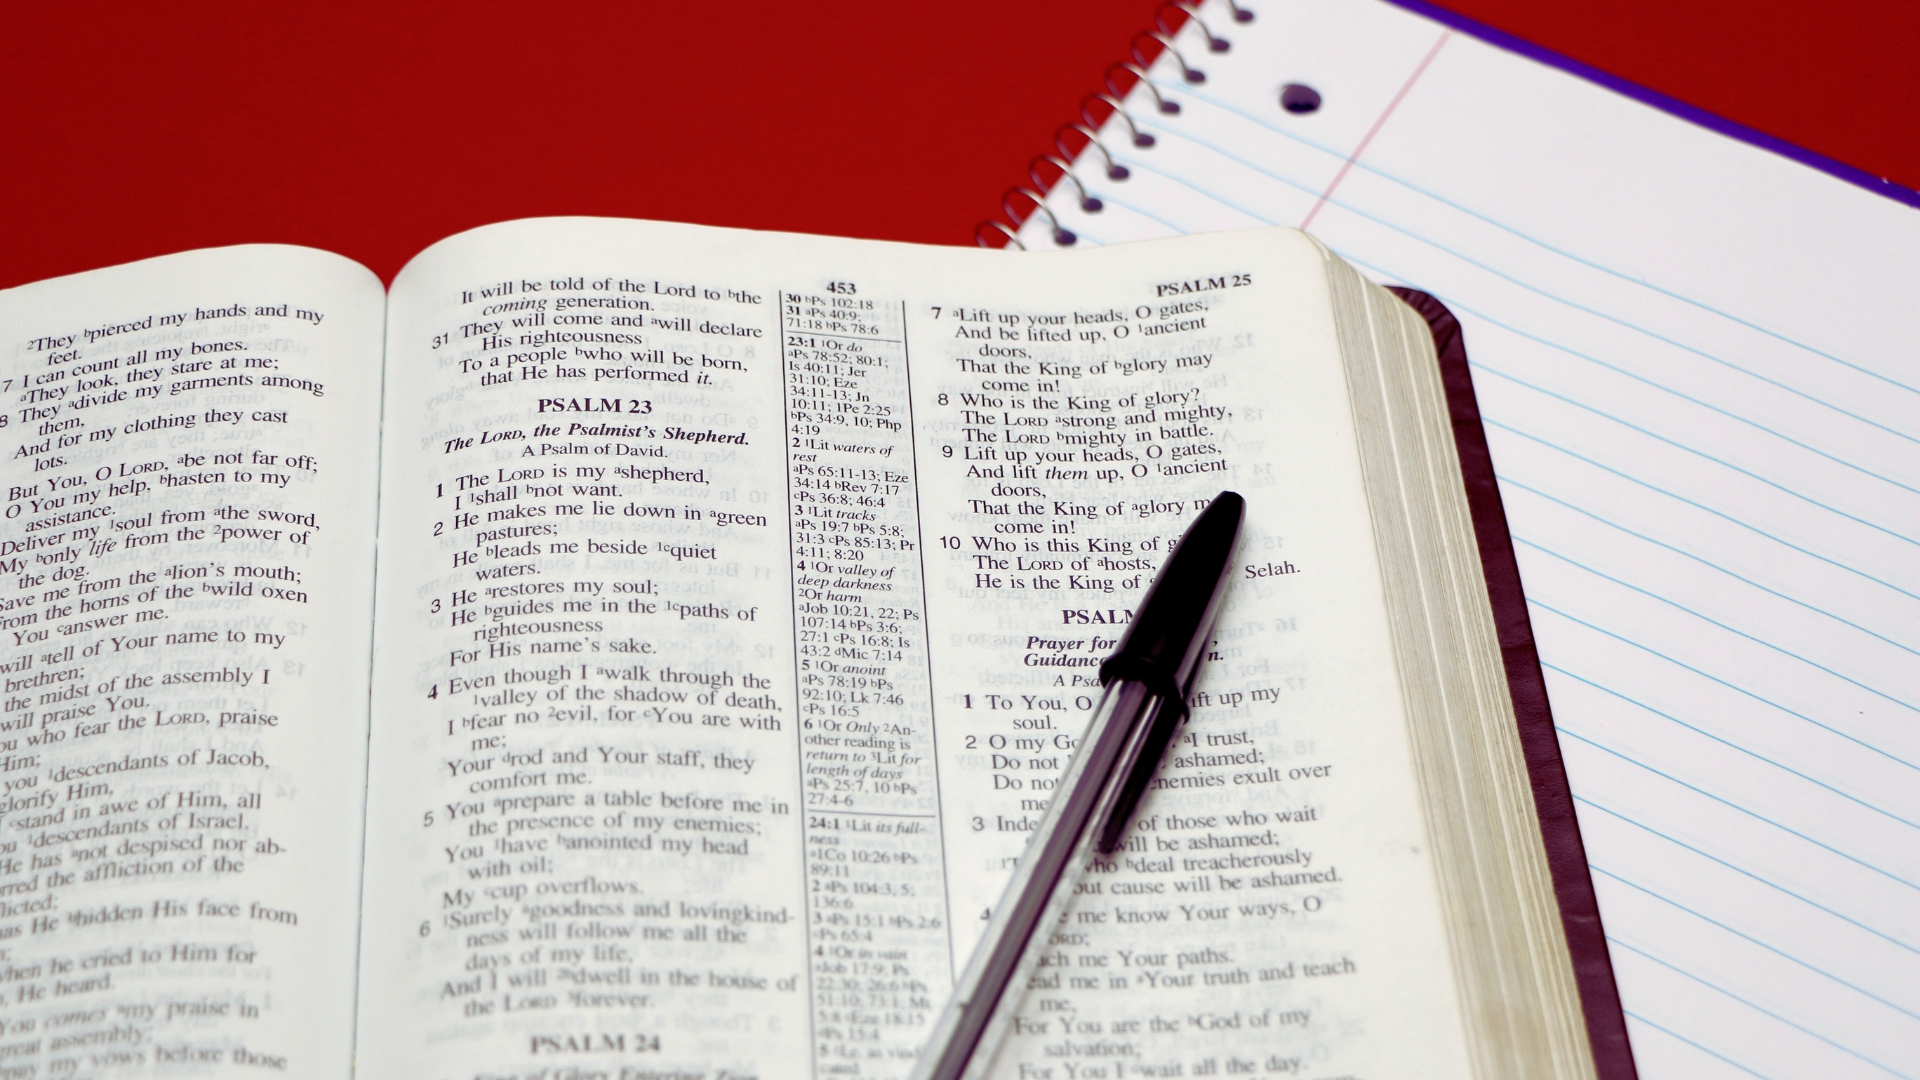 ²They ᵇpierced my hands and my
feet.
7 I can count all my bones.
ᵃThey look, they stare at me;
8 They ᵃdivide my garments among
them,
And for my clothing they cast
lots.
But You, O LORD, ᵃbe not far off;
O You my help, ᵇhasten to my
assistance.
Deliver my ¹soul from ᵃthe sword,
My ᵇonly life from the ²power of
the dog.
Save me from the ᵃlion's mouth;
From the horns of the ᵇwild oxen
You ᶜanswer me.
will ᵃtell of Your name to my
brethren;
the midst of the assembly I
will praise You.
who fear the LORD, praise
Him;
you ¹descendants of Jacob,
glorify Him,
ᶜstand in awe of Him, all
¹descendants of Israel.
He has ᵃnot despised nor ab-
the affliction of the
has He ᵇhidden His face from
when he cried to Him for
He heard.
You comes ᵃmy praise in
great assembly;
pay my vows before those
It will be told of the Lord to ᵇthe
coming generation.
31 They will come and ᵃwill declare
His righteousness
To a people ᵇwho will be born,
that He has performed it.
PSALM 23
The LORD, the Psalmist's Shepherd.
A Psalm of David.
1 The LORD is my ᵃshepherd,
I ¹shall ᵇnot want.
2 He makes me lie down in ᵃgreen
pastures;
He ᵇleads me beside ¹ᶜquiet
waters.
3 He ᵃrestores my soul;
He ᵇguides me in the ¹ᶜpaths of
righteousness
For His name's sake.
4 Even though I ᵃwalk through the
¹valley of the shadow of death,
I ᵇfear no ²evil, for ᶜYou are with
me;
Your ᵈrod and Your staff, they
comfort me.
5 You ᵃprepare a table before me in
the presence of my enemies;
You ¹have ᵇanointed my head
with oil;
My ᶜcup overflows.
6 ¹Surely ᵃgoodness and lovingkind-
ness will follow me all the
days of my life,
And I will ²ᵇdwell in the house of
the LORD ³forever.
PSALM 24
King of Glory Entering Zion
453
30 ᵇPs 102:18
31 ᵃPs 40:9;
71:18 ᵇPs 78:6
23:1 ¹Or do
ᵃPs 78:52; 80:1;
Is 40:11; Jer
31:10; Eze
34:11-13; Jn
10:11; 1Pe 2:25
ᵇPs 34:9, 10; Php
4:19
2 ¹Lit waters of
rest
ᵃPs 65:11-13; Eze
34:14 ᵇRev 7:17
ᶜPs 36:8; 46:4
3 ¹Lit tracks
ᵃPs 19:7 ᵇPs 5:8;
31:3 ᶜPs 85:13; Pr
4:11; 8:20
4 ¹Or valley of
deep darkness
²Or harm
ᵃJob 10:21, 22; Ps
107:14 ᵇPs 3:6;
27:1 ᶜPs 16:8; Is
43:2 ᵈMic 7:14
5 ¹Or anoint
ᵃPs 78:19 ᵇPs
92:10; Lk 7:46
ᶜPs 16:5
6 ¹Or Only ²An-
other reading is
return to ³Lit for
length of days
ᵃPs 25:7, 10 ᵇPs
27:4-6
24:1 ¹Lit its full-
ness
ᵃ1Co 10:26 ᵇPs
89:11
2 ᵃPs 104:3, 5;
136:6
3 ᵃPs 15:1 ᵇPs 2:6
ᶜPs 65:4
4 ¹Or in vain
ᵃJob 17:9; Ps
22:30; 26:6 ᵇPs
51:10; 73:1; Mt
5:8 ᶜEze 18:15
ᵈPs 15:4
PSALM 25
7 ᵃLift up your heads, O gates,
And be lifted up, O ¹ancient
doors,
That the King of ᵇglory may
come in!
8 Who is the King of glory?
The LORD ᵃstrong and mighty,
The LORD ᵇmighty in battle.
9 Lift up your heads, O gates,
And lift them up, O ¹ancient
doors,
That the King of ᵃglory m
come in!
10 Who is this King of g
The LORD of ᵃhosts,
He is the King of Selah.
PSALM
Prayer for
Guidance n.
A Psa
1 To You, O ift up my
soul.
2 O my Go ᵃI trust,
Do not ashamed;
Do not enemies exult over
me
3 Inde of those who wait
will be ashamed;
who ᵇdeal treacherously
out cause will be ashamed.
4 me know Your ways, O
ORD;
ach me Your paths.
ead me in ᵃYour truth and teach
me,
For You are the ᵇGod of my
salvation;
For You I ᶜwait all the day.